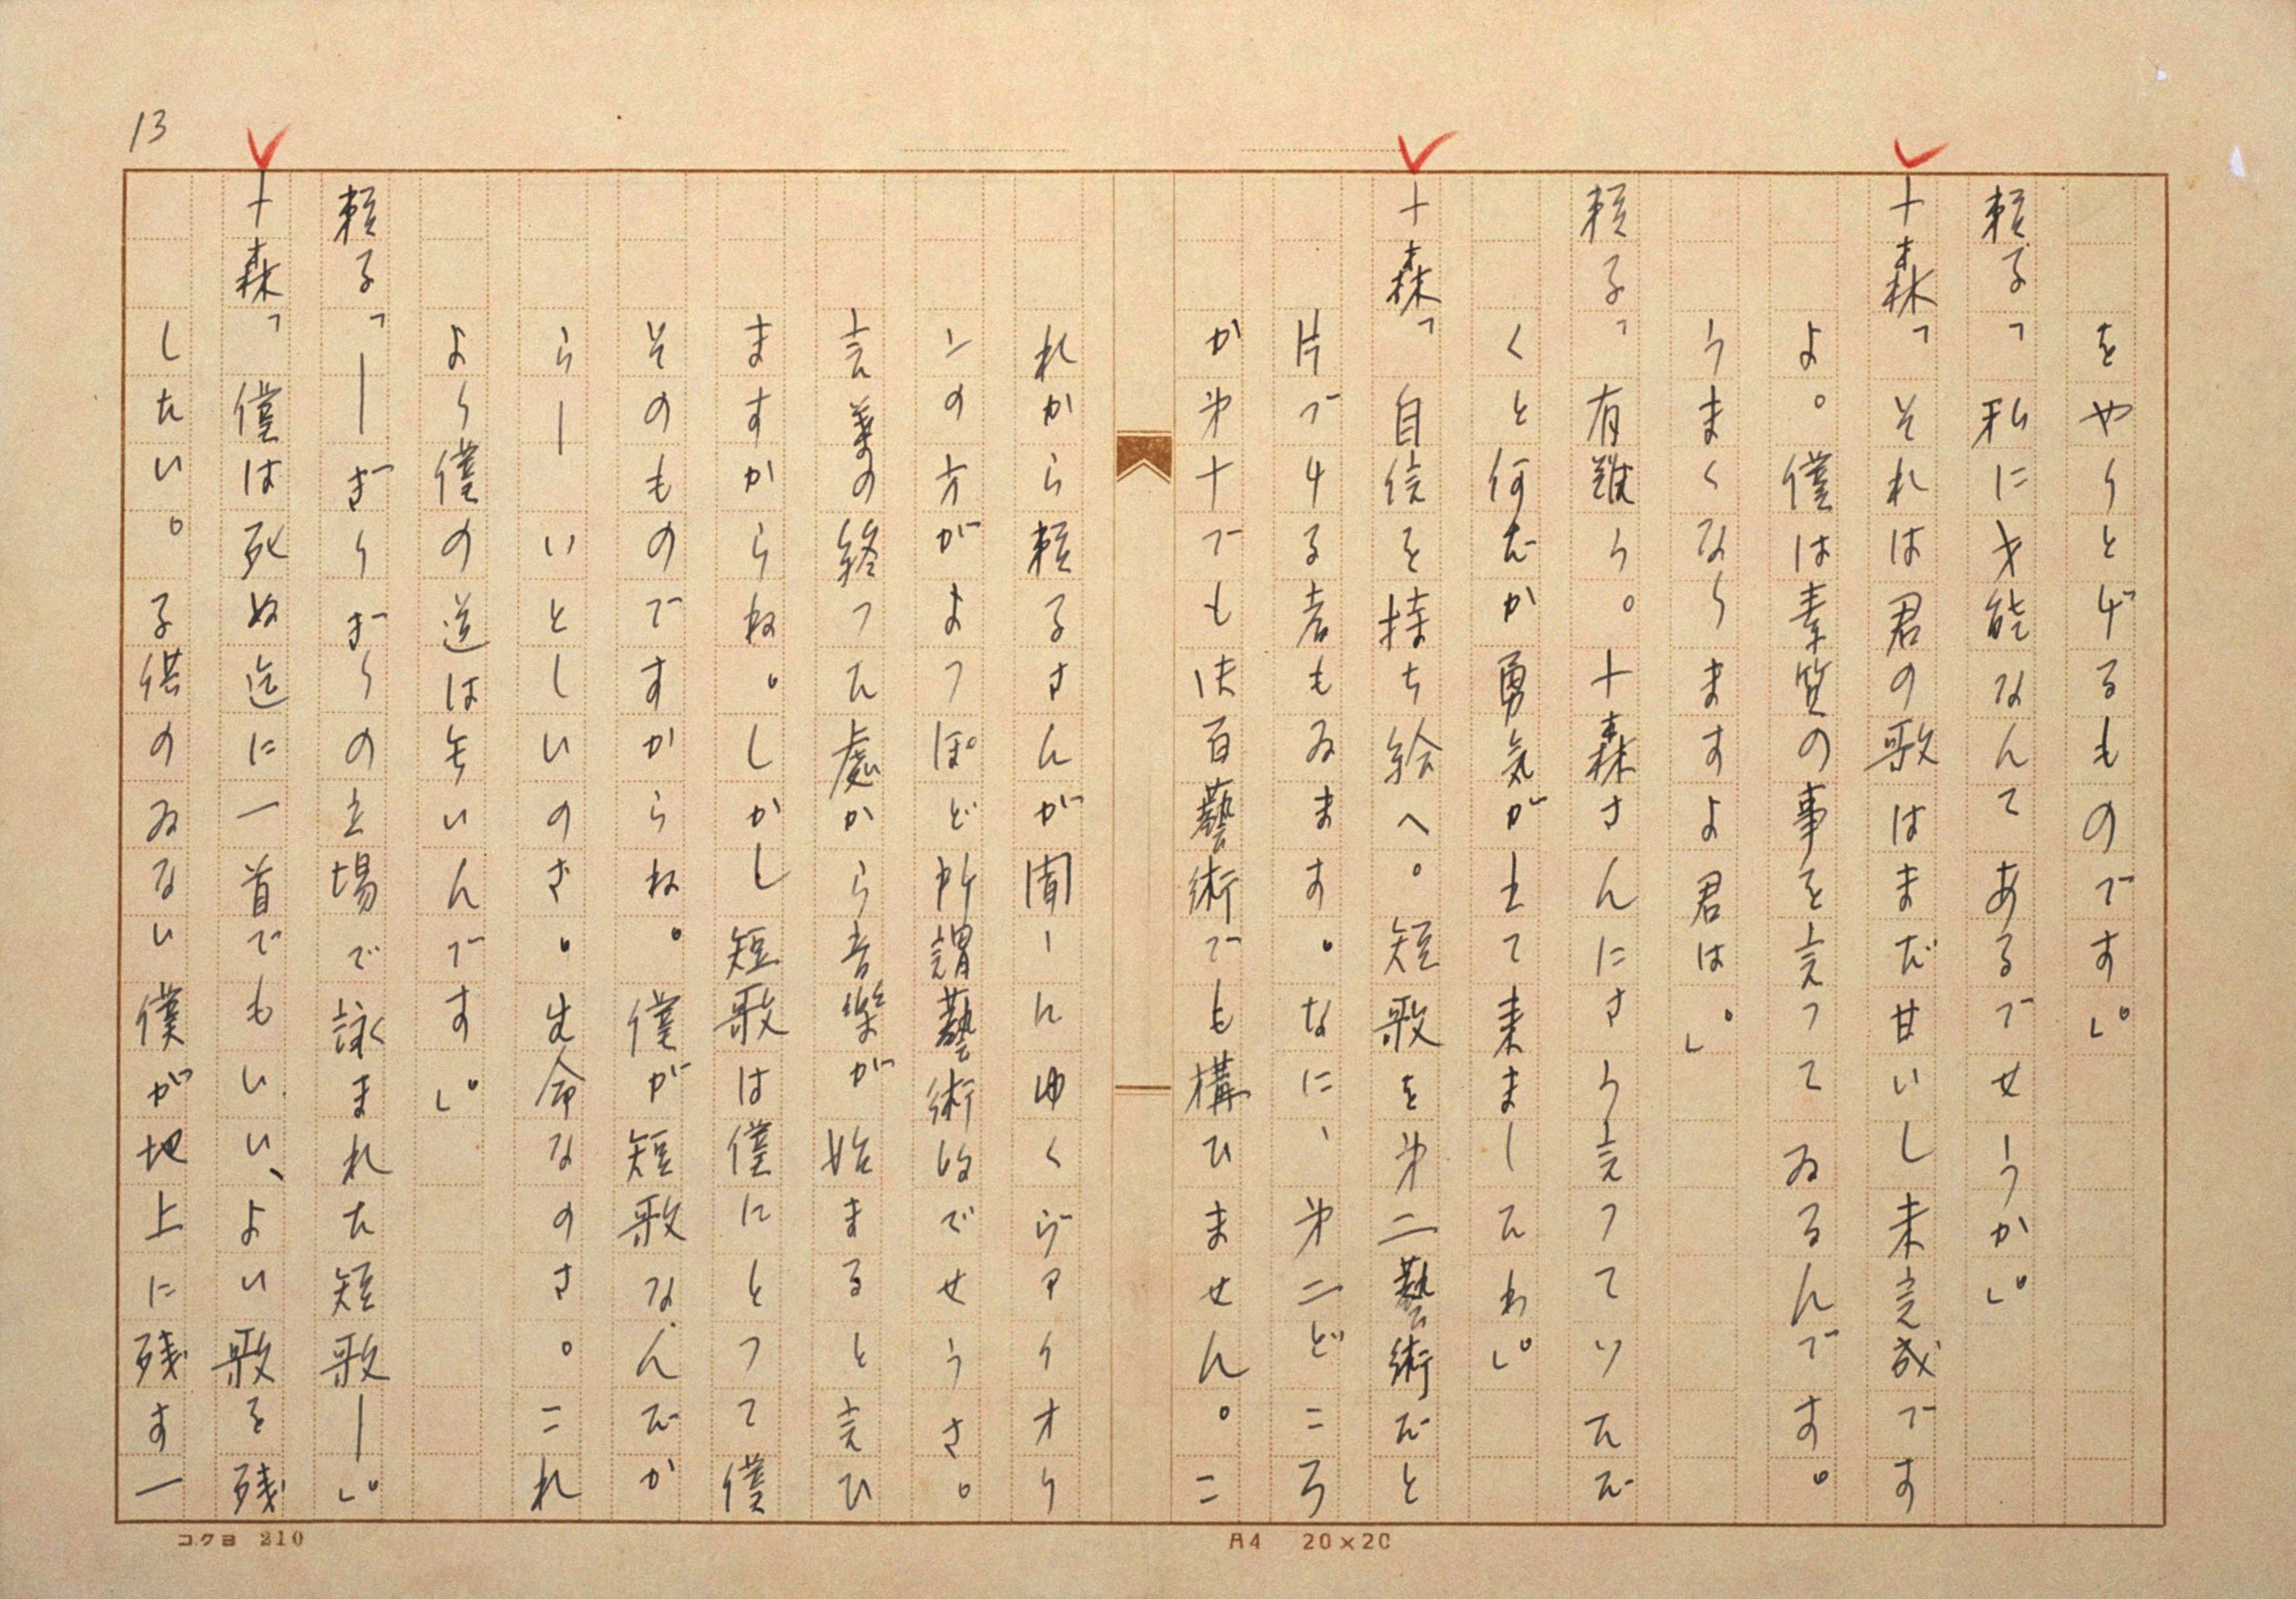 13
をやりとげるものです。」
頼子「私に才能なんてあるでせうか。」
十森「それは君の歌はまだ甘いし未完成です
よ。僕は素質の事を言つてゐるんです。
うまくなりますよ君は。」
頼子「有難う。十森さんにさう言つていただ
くと何だか勇気が出て来ましたわ。」
十森「自信を持ち給へ。短歌を第二藝術だと
片づける者もゐます。なに、第二どころ
か第十でも第百藝術でも構ひません。こ
れから頼子さんが聞ーにゆくヴアイオリ
ンの方がよつぽど所謂藝術的でせうさ。
言葉の終つた處から音楽が始まると言ひ
ますからね。しかし短歌は僕にとつて僕
そのものですからね。僕が短歌なんだか
らー いとしいのさ。生命なのさ。これ
より僕の道は無いんです。」
頼子「―ぎりぎりの立場で詠まれた短歌―。」
十森「僕は死ぬ迄に一首でもいい、よい歌を残
したい。子供のゐない僕が地上に残す一
コクヨ 210
A4 20×20